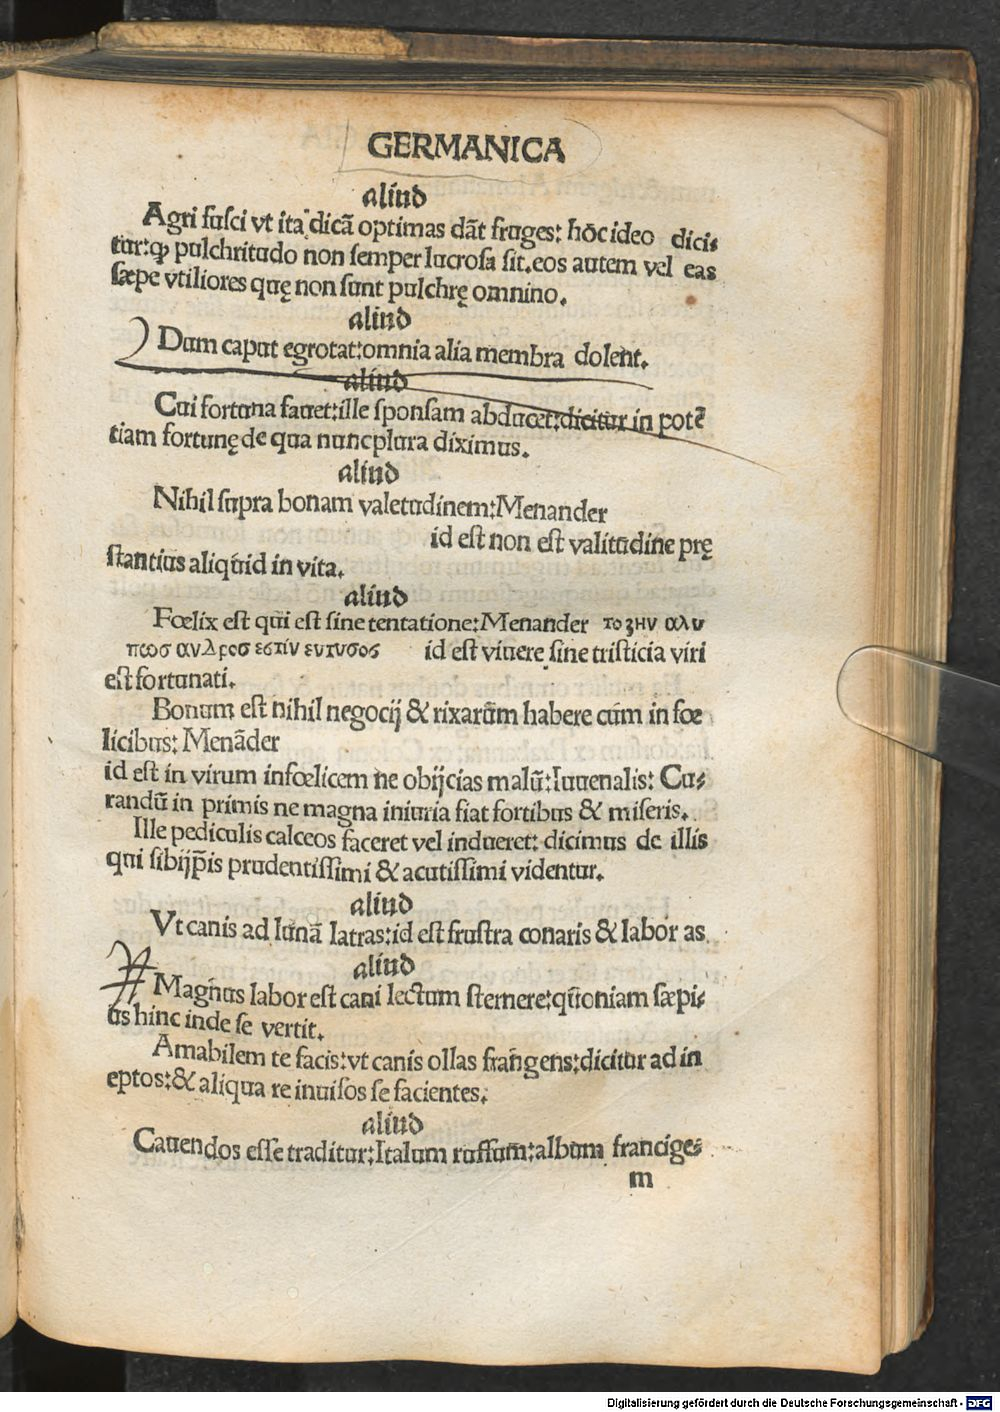 GERMANICA
aliud
Agri fusci vt ita dicā optimas dāt fruges: hōc ideo dici⸗
tur: ꝙ pulchritudo non semper lucrosa sit. eos autem vel eas
sæpe vtiliores quę non sunt pulchrę omnino.
aliud
Dum caput egrotat: omnia alia membra dolent.
aliud
Cui fortuna fauet: ille sponsam abducet: dicitur in potē
tiam fortunę de qua nunc plura diximus.
aliud
Nihil supra bonam valetudinem: Menander
id est non est valitudine prę
stantius aliquid in vita.
aliud
Fœlix est qui est sine tentatione: Menander το ζην αλυ
πωσ ανδροσ εστιν ευτυσοσ id est viuere sine tristicia viri
est fortunati.
Bonum est nihil negocij & rixarum habere cum in fœ
licibus: Menāder
id est in virum infœlicem ne obijcias malū: Iuuenalis: Cu⸗
randū in primis ne magna iniuria fiat fortibus & miseris.
Ille pediculis calceos faceret vel indueret: dicimus de illis
qui sibijp̄is prudentissimi & acutissimi videntur.
aliud
Vt canis ad lunā latras: id est frustra conaris & labor as
aliud
Magnus labor est cani lectum sternere: quoniam sæpi⸗
us hinc inde se vertit.
Amabilem te facis: vt canis ollas frangens: dicitur ad in
eptos: & aliqua re inuisos se facientes:
aliud
Cauendos esse traditur: Italum ruffum: album francige⸗
m
Digitalisierung gefördert durch die Deutsche Forschungsgemeinschaft - DFG